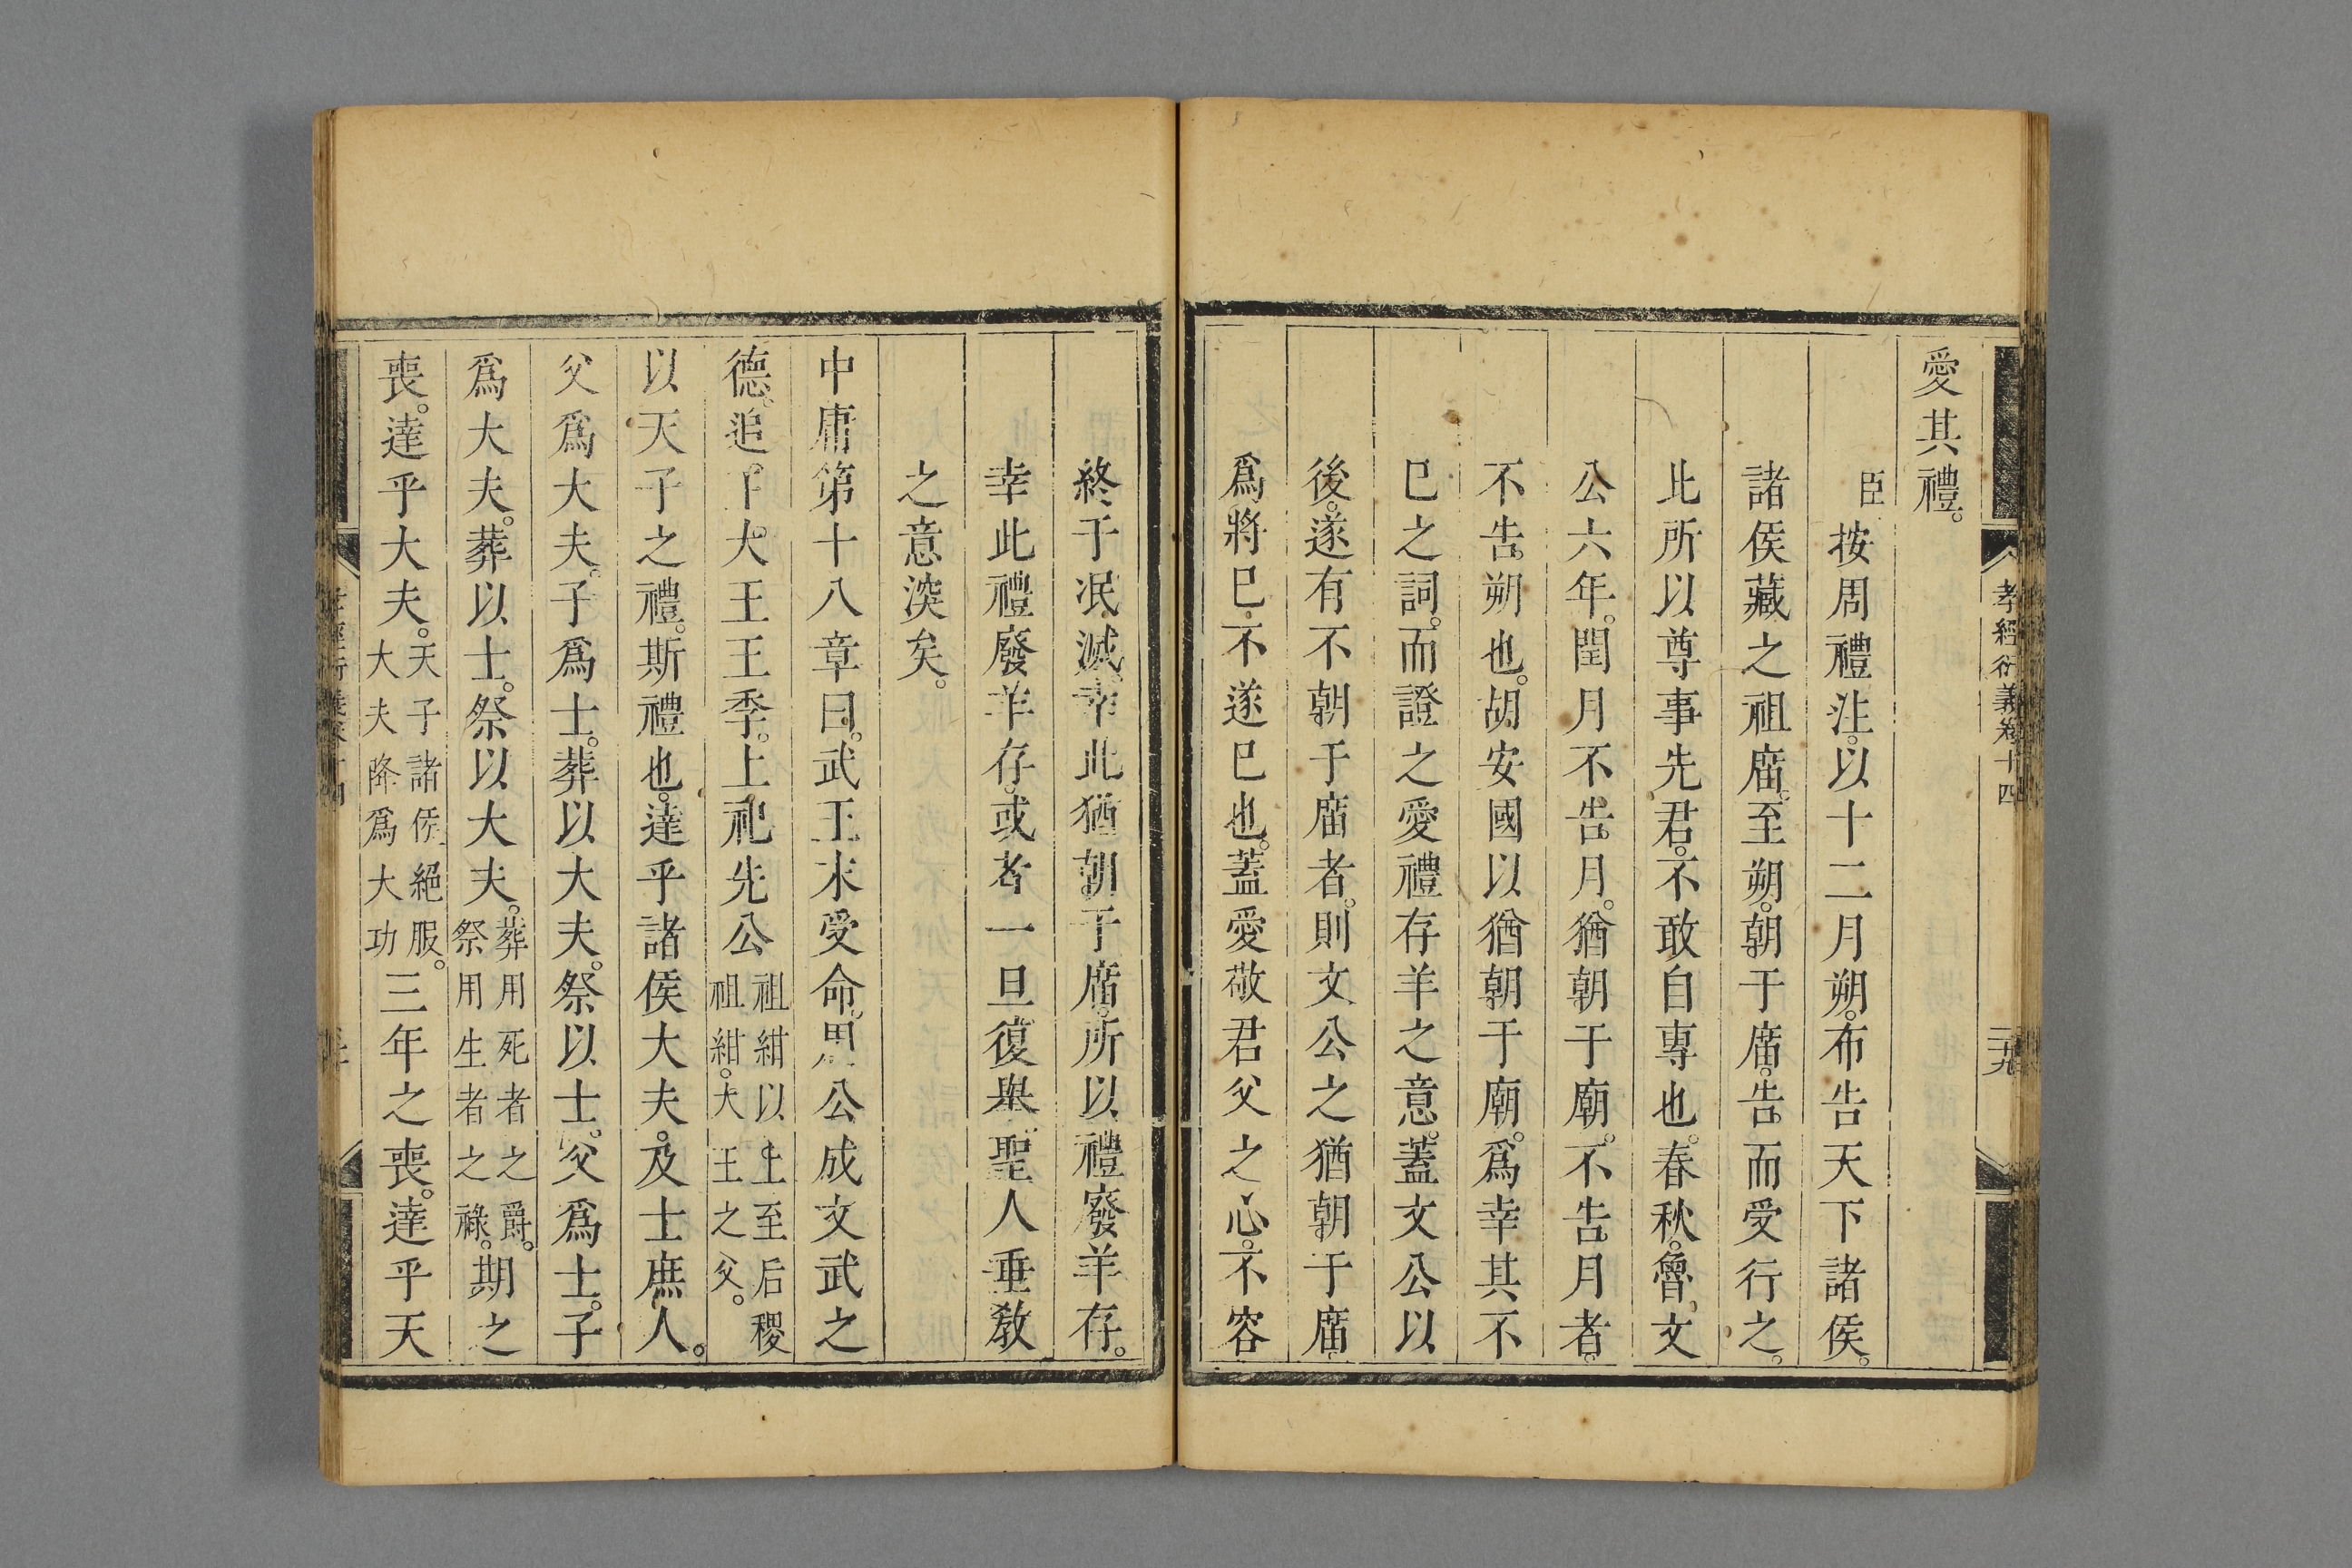 孝經衍義卷十四
二十九
愛其禮。
臣按周禮注。以十二月朔。布告天下諸侯。
諸侯藏之祖廟。至朔。朝于廟。告而受行之。
此所以尊事先君。不敢自專也。春秋。魯文
公六年。閏月不告月。猶朝于廟。不告月者。
不告朔也。胡安國以猶朝于廟。爲幸其不
已之詞。而證之愛禮存羊之意。蓋文公以
後。遂有不朝于廟者。則文公之猶朝于廟。
爲將已。不遂已也。蓋愛敬君父之心。不容
終于泯滅。幸此猶朝于廟。所以禮廢羊存。
幸此禮廢羊存。或者一旦復舉聖人垂敎
之意深矣。
中庸第十八章曰。武王末受命。周公成文武之
德。追王大王王季。上祀先公祖紺以上至后稷
祖紺。大王之父。
以天子之禮。斯禮也。達乎諸侯大夫。及士庶人。
父爲大夫。子爲士。葬以大夫。祭以士。父爲士。子
爲大夫。葬以士。祭以大夫。葬用死者之爵。
祭用生者之祿。期之
喪。達乎大夫。天子諸侯絕服。
大夫降爲大功三年之喪。達乎天